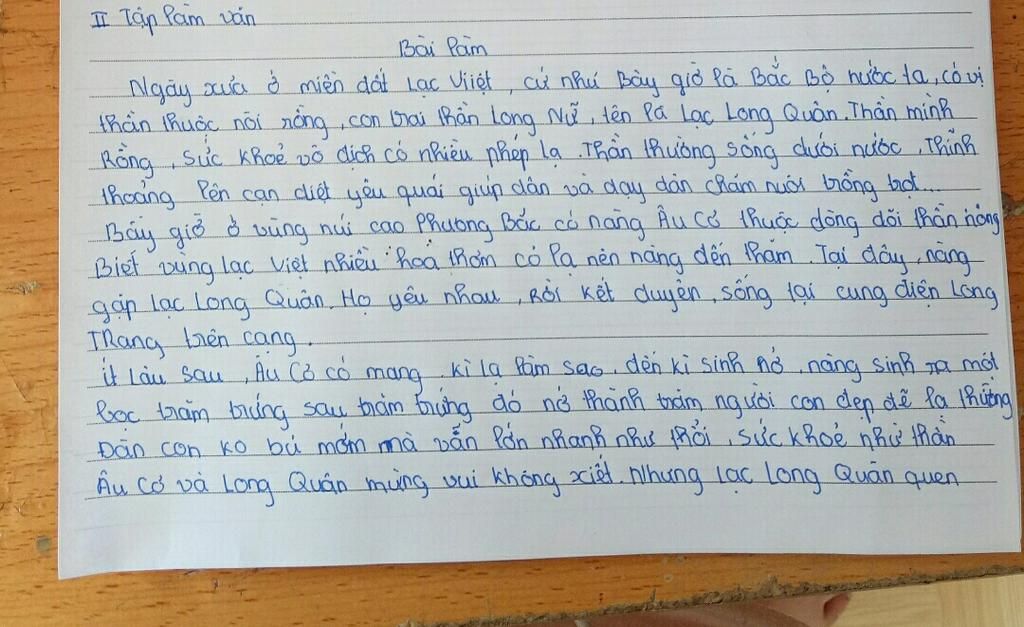 II Tập làm văn
Bài làm
Ngày xưa ở miền đất Lạc Việt, cứ như Bây giờ là Bắc Bộ nước ta, có vị
thần thuộc nòi rồng, con trai thần Long Nữ, tên là Lạc Long Quân. Thần mình
Rồng, sức khoẻ vô địch có nhiều phép lạ. Thần thường sống dưới nước, Thỉnh
thoảng lên cạn diệt yêu quái giúp dân và dạy dân chăm nuôi trồng trọt...
Bấy giờ ở vùng núi cao Phương Bắc có nàng Âu Cơ thuộc dòng dõi thần nông
Biết vùng lạc Việt nhiều hoa thơm cỏ lạ nên nàng đến thăm. Tại đây, nàng
gặp lạc Long Quân. Họ yêu nhau, Rồi kết duyên, sống tại cung điện Long
TRang trên cạng.
ít lâu sau, Âu Cơ có mang. kì lạ làm sao, đến kì sinh nở, nàng sinh ra một
bọc trăm trứng sau trăm trứng đó nở thành trăm người con đẹp đẽ lạ thường
Đàn con ko bú mớm mà vẫn lớn nhanh như thổi, sức khoẻ như thần
Âu Cơ và Long Quân mừng vui không xiết. Nhưng Lạc Long Quân quen